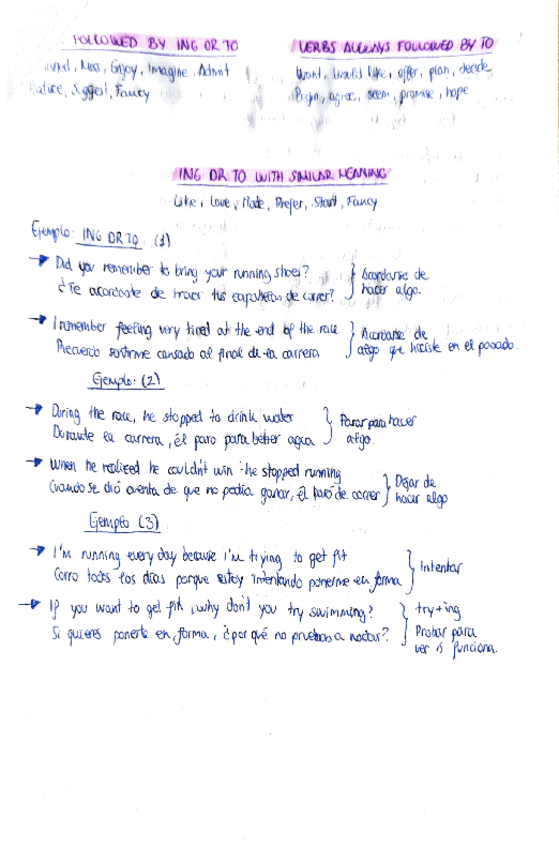 FOLLOWED BY ING OR TO
Miss, Enjoy, Imagine, Admit
Suggest, Fancy
VERBS ALWAYS FOLLOWED BY TO
Want, would like, offer, plan, decide
agree, seem, promise, hope
ING OR TO WITH SIMILAR MEANING
Like, Love, Hate, Prefer, Start, Fancy
Ejemplo: ING OR TO (1)
→ Did you remember to bring your running shoes? } Acordarse de
¿Te acordaste de traer tus zapatillas de correr? hacer algo.
→ I remember feeling very tired at the end of the race } Acordarse de
Recuerdo sentirme cansado al final de la carrera algo que hiciste en el pasado.
Ejemplo: (2)
→ During the race, he stopped to drink water } Parar para hacer
Durante la carrera, él paro para beber agua algo.
→ When he realised he couldn't win he stopped running } Dejar de
Cuando se dió cuenta de que no podía ganar, él paró de correr hacer algo
Ejemplo (3)
→ I'm running every day because I'm trying to get fit } Intentar
Corro todos los días porque estoy intentando ponerme en forma
→ If you want to get fit, why don't you try swimming? } try+ing
Si quieres ponerte en forma, ¿por qué no pruebas a nadar? Probar para
ver si funciona.